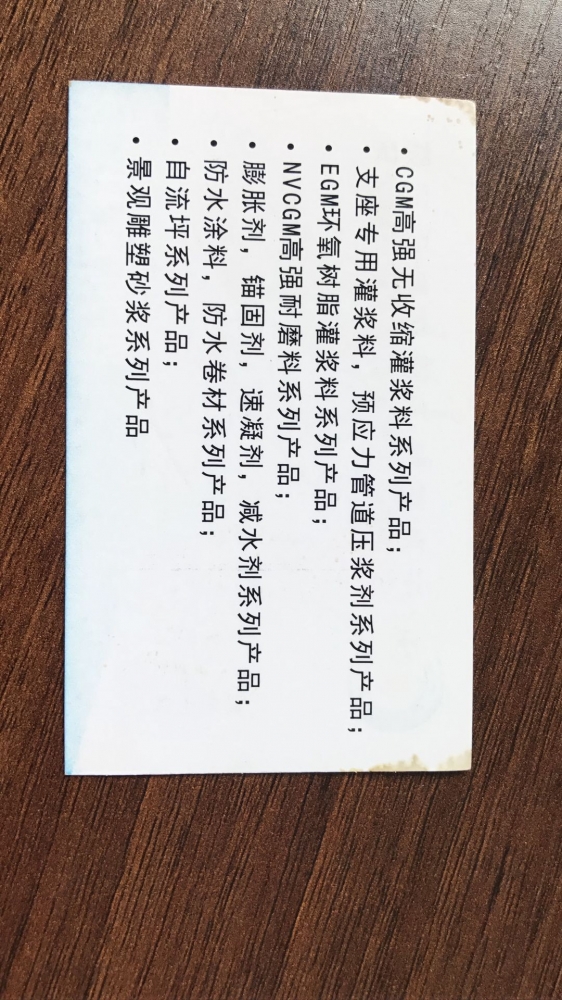 • CGM高强无收缩灌浆料系列产品；
• 支座专用灌浆料，预应力管道压浆剂系列产品；
• EGM环氧树脂灌浆料系列产品；
• NVCGM高强耐磨料系列产品；
• 膨胀剂，锚固剂，速凝剂，减水剂系列产品；
• 防水涂料，防水卷材系列产品；
• 自流坪系列产品；
• 景观雕塑砂浆系列产品